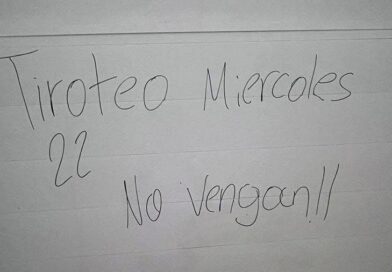 Tiroteo Miercoles
22
No Vengan!!